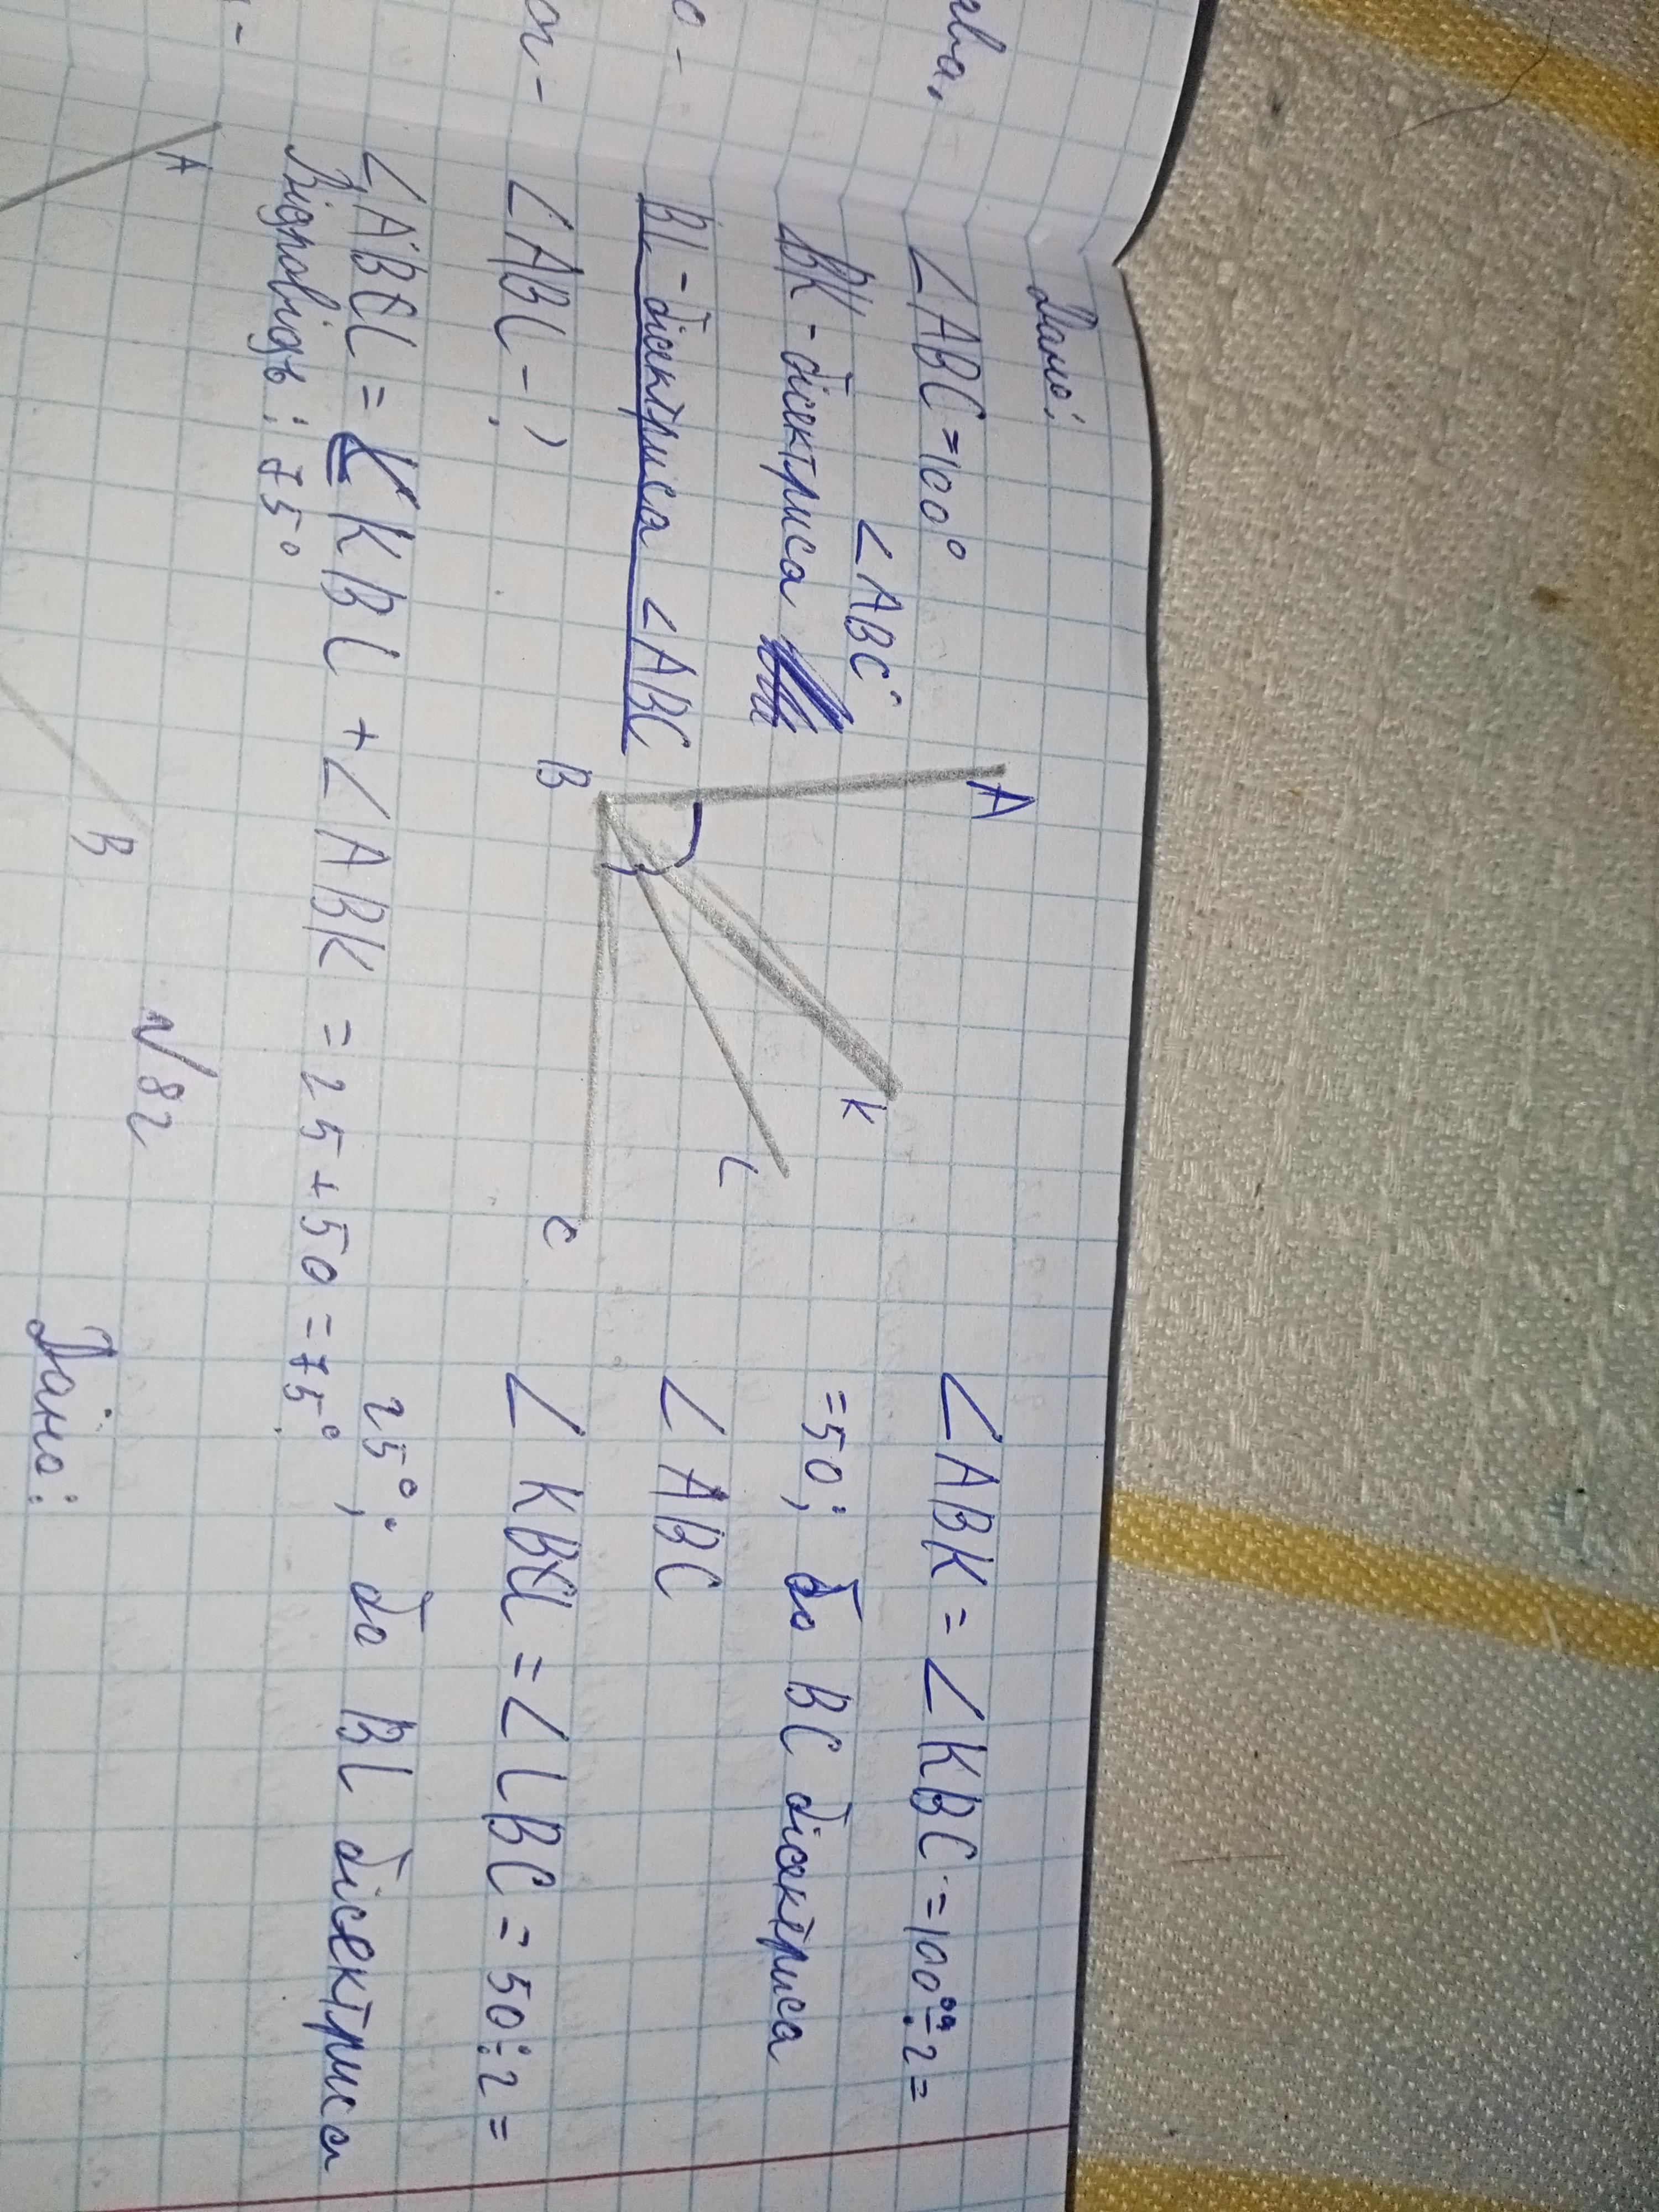 Дано:
∠ABC=100°
∠ABC
BK - бісектриса
BL - бісектриса ∠ABC
∠ABL - ?
A
K
L
B
C
∠ABK = ∠KBC = 100° : 2 =
= 50; бо BC бісектриса
∠ABC
∠KBL = ∠LBC = 50 : 2 =
25°; бо BL бісектриса
∠ABL = ∠KBL + ∠ABK = 25 + 50 = 75°
Відповідь: 75°
№82
A
B
Дано: